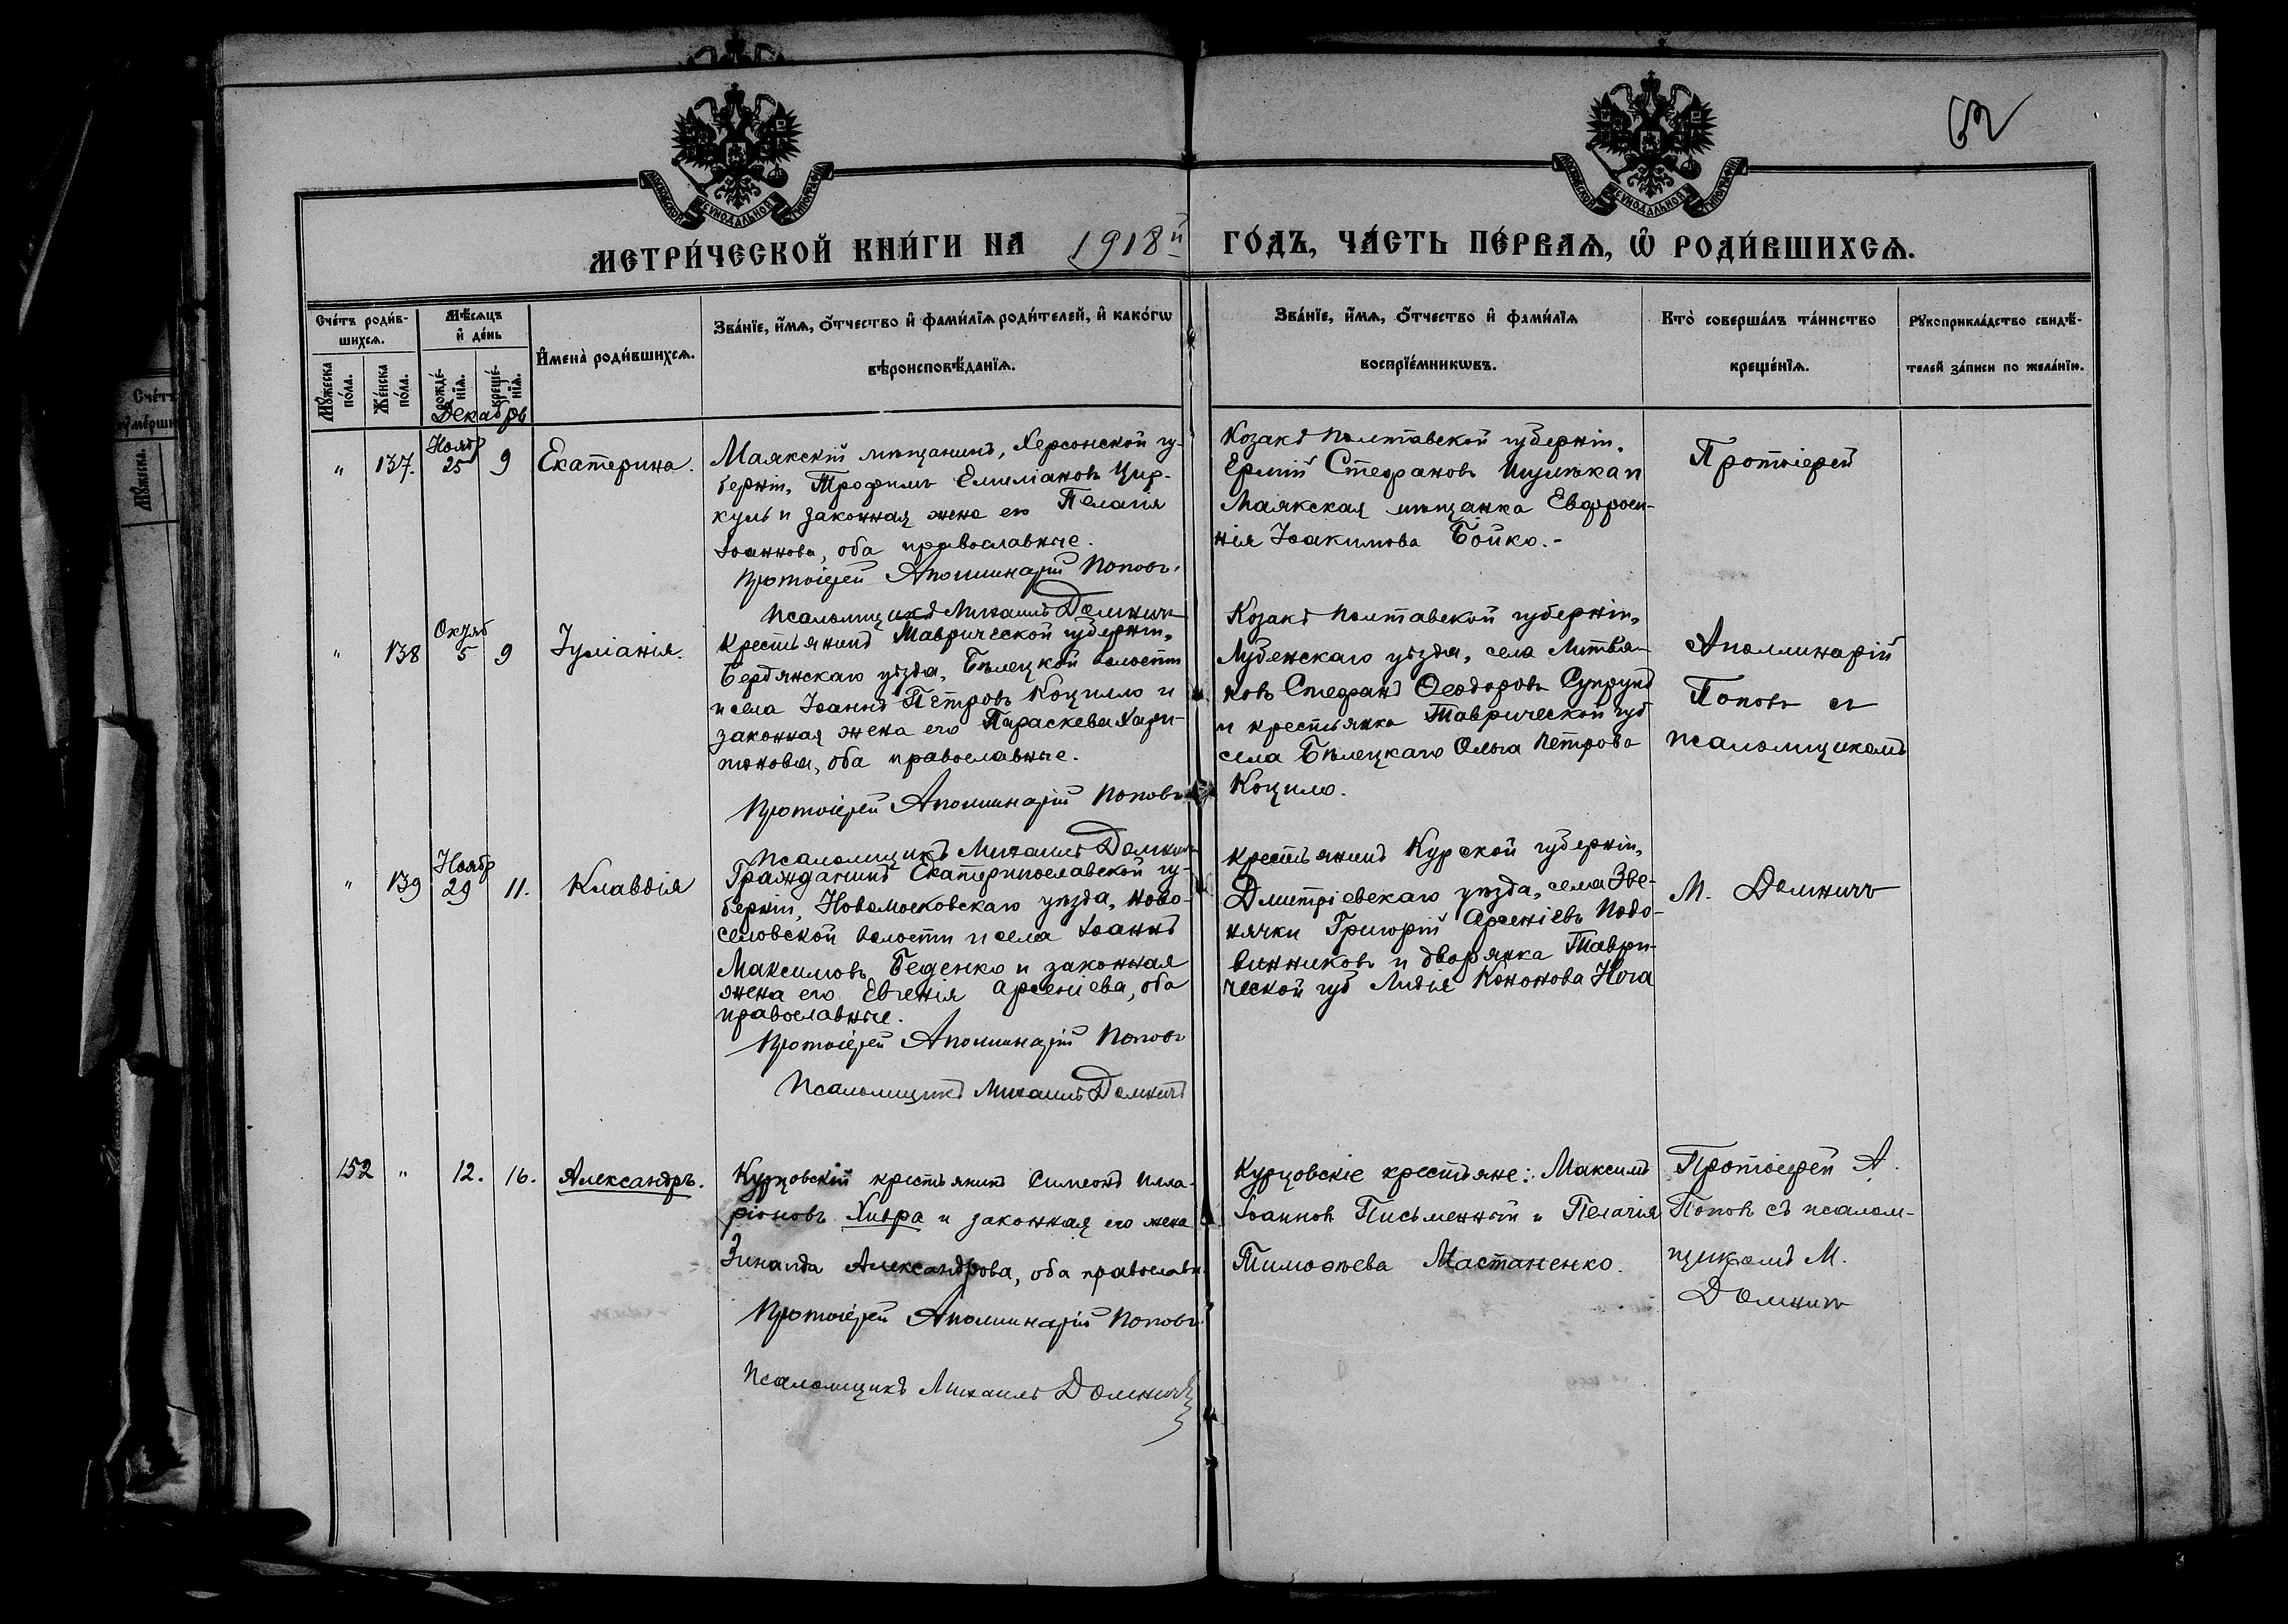 62
МОСКОВСКОЙ СУНОДАЛЬНОЙ ТИПОГРАФІИ
МОСКОВСКОЙ СУНОДАЛЬНОЙ ТИПОГРАФІИ
МЕТРИ́ЧЕСКОЙ КНИ́ГИ НА 1918й ГО́ДЪ, ЧА́СТЬ ПЕ́РВАѦ, Ѡ РОДИ́ВШИХСѦ.
Сче́тъ роди́в-
шихсѧ.
Мѣ́сѧцъ
и де́нь
Мꙋ́жеска
по́ла.
Же́нска
по́ла.
рожде́-
нїѧ.
креще́-
нїѧ.
И҆мена̀ роди́вшихсѧ.
Зва́нїе, и҆́мѧ, ѻ҆́тчество и҆ фами́лїѧ роди́телей, и҆ како́гѡ
вѣроисповѣ́данїѧ.
Зва́нїе, и҆́мѧ, ѻ҆́тчество и҆ фами́лїѧ
воспрїе́мникѡвъ.
Кто̀ соверша́лъ та́инство
креще́нїѧ.
Рꙋкоприкла́дство свидѣ́-
телей за́писи по жела́нїю.
Декабрь
" 137. Нояб 25 9 Екатерина.
Маякскій мѣщанинъ, Херсонской гу-
берніи, Трофимъ Емиліановъ Цир-
куль и законная жена его Пелагія
Іоаннова, оба православные.
Протоіерей Аполлинарій Поповъ.
Псаломщикъ Михаилъ Домнич
Козакъ Полтавской губерніи,
Ермій Стефановъ Шулѣка и
Маякская мѣщанка Евфроси-
нія Іоакимова Бойко.-
Протоіерей
" 138 Октяб 5 9 Іуліанія.
Крестьянинъ Таврической губерніи,
Бердянскаго уѣзда, Бѣлецкой волости
и села Іоаннъ Петровъ Коцило и
законная жена его Параскева Хари-
тонова, оба православные.
Протоіерей Аполлинарій Поповъ
Псаломщикъ Михаилъ Домнич
Козакъ Полтавской губерніи,
Лубенскаго уѣзда, села Литвя-
ковъ Стефанъ Ѳеодоровъ Супрунъ
и крестьянка Таврической губ
села Бѣлецкаго Ольга Петрова
Коцило.
Аполлинарій
Поповъ съ
псаломщикомъ
" 139 Ноябр 29 11. Клавдія
Гражданинъ Екатеринославской гу-
берніи, Новомосковскаго уѣзда, Ново-
селовской волости и села Іоаннъ
Максимовъ Беденко и законная
жена его Евгенія Арсеніева, оба
православные.
Протоіерей Аполлинарій Поповъ
Псаломщикъ Михаилъ Домничъ
Крестьянинъ Курской губерніи,
Дмитріевскаго уѣзда, села Зве-
нячки Григорій Арсеніевъ Подо-
винниковъ и дворянка Таври-
ческой губ Лидія Кононова Нога
М. Домничъ
152 " 12. 16. Александръ.
Курцовскій крестьянинъ Симеонъ Илла-
ріоновъ Хивра и законная его жена
Зинаида Александрова, оба православн.
Протоіерей Аполлинарій Поповъ
Псаломщикъ Михаилъ Домничъ
Курцовскіе крестьяне: Максимъ
Іоанновъ Письменный и Пелагія
Тимоѳѣева Мастаненко.
Протоіерей А.
Поповъ съ псалом-
щикомъ М.
Домнич